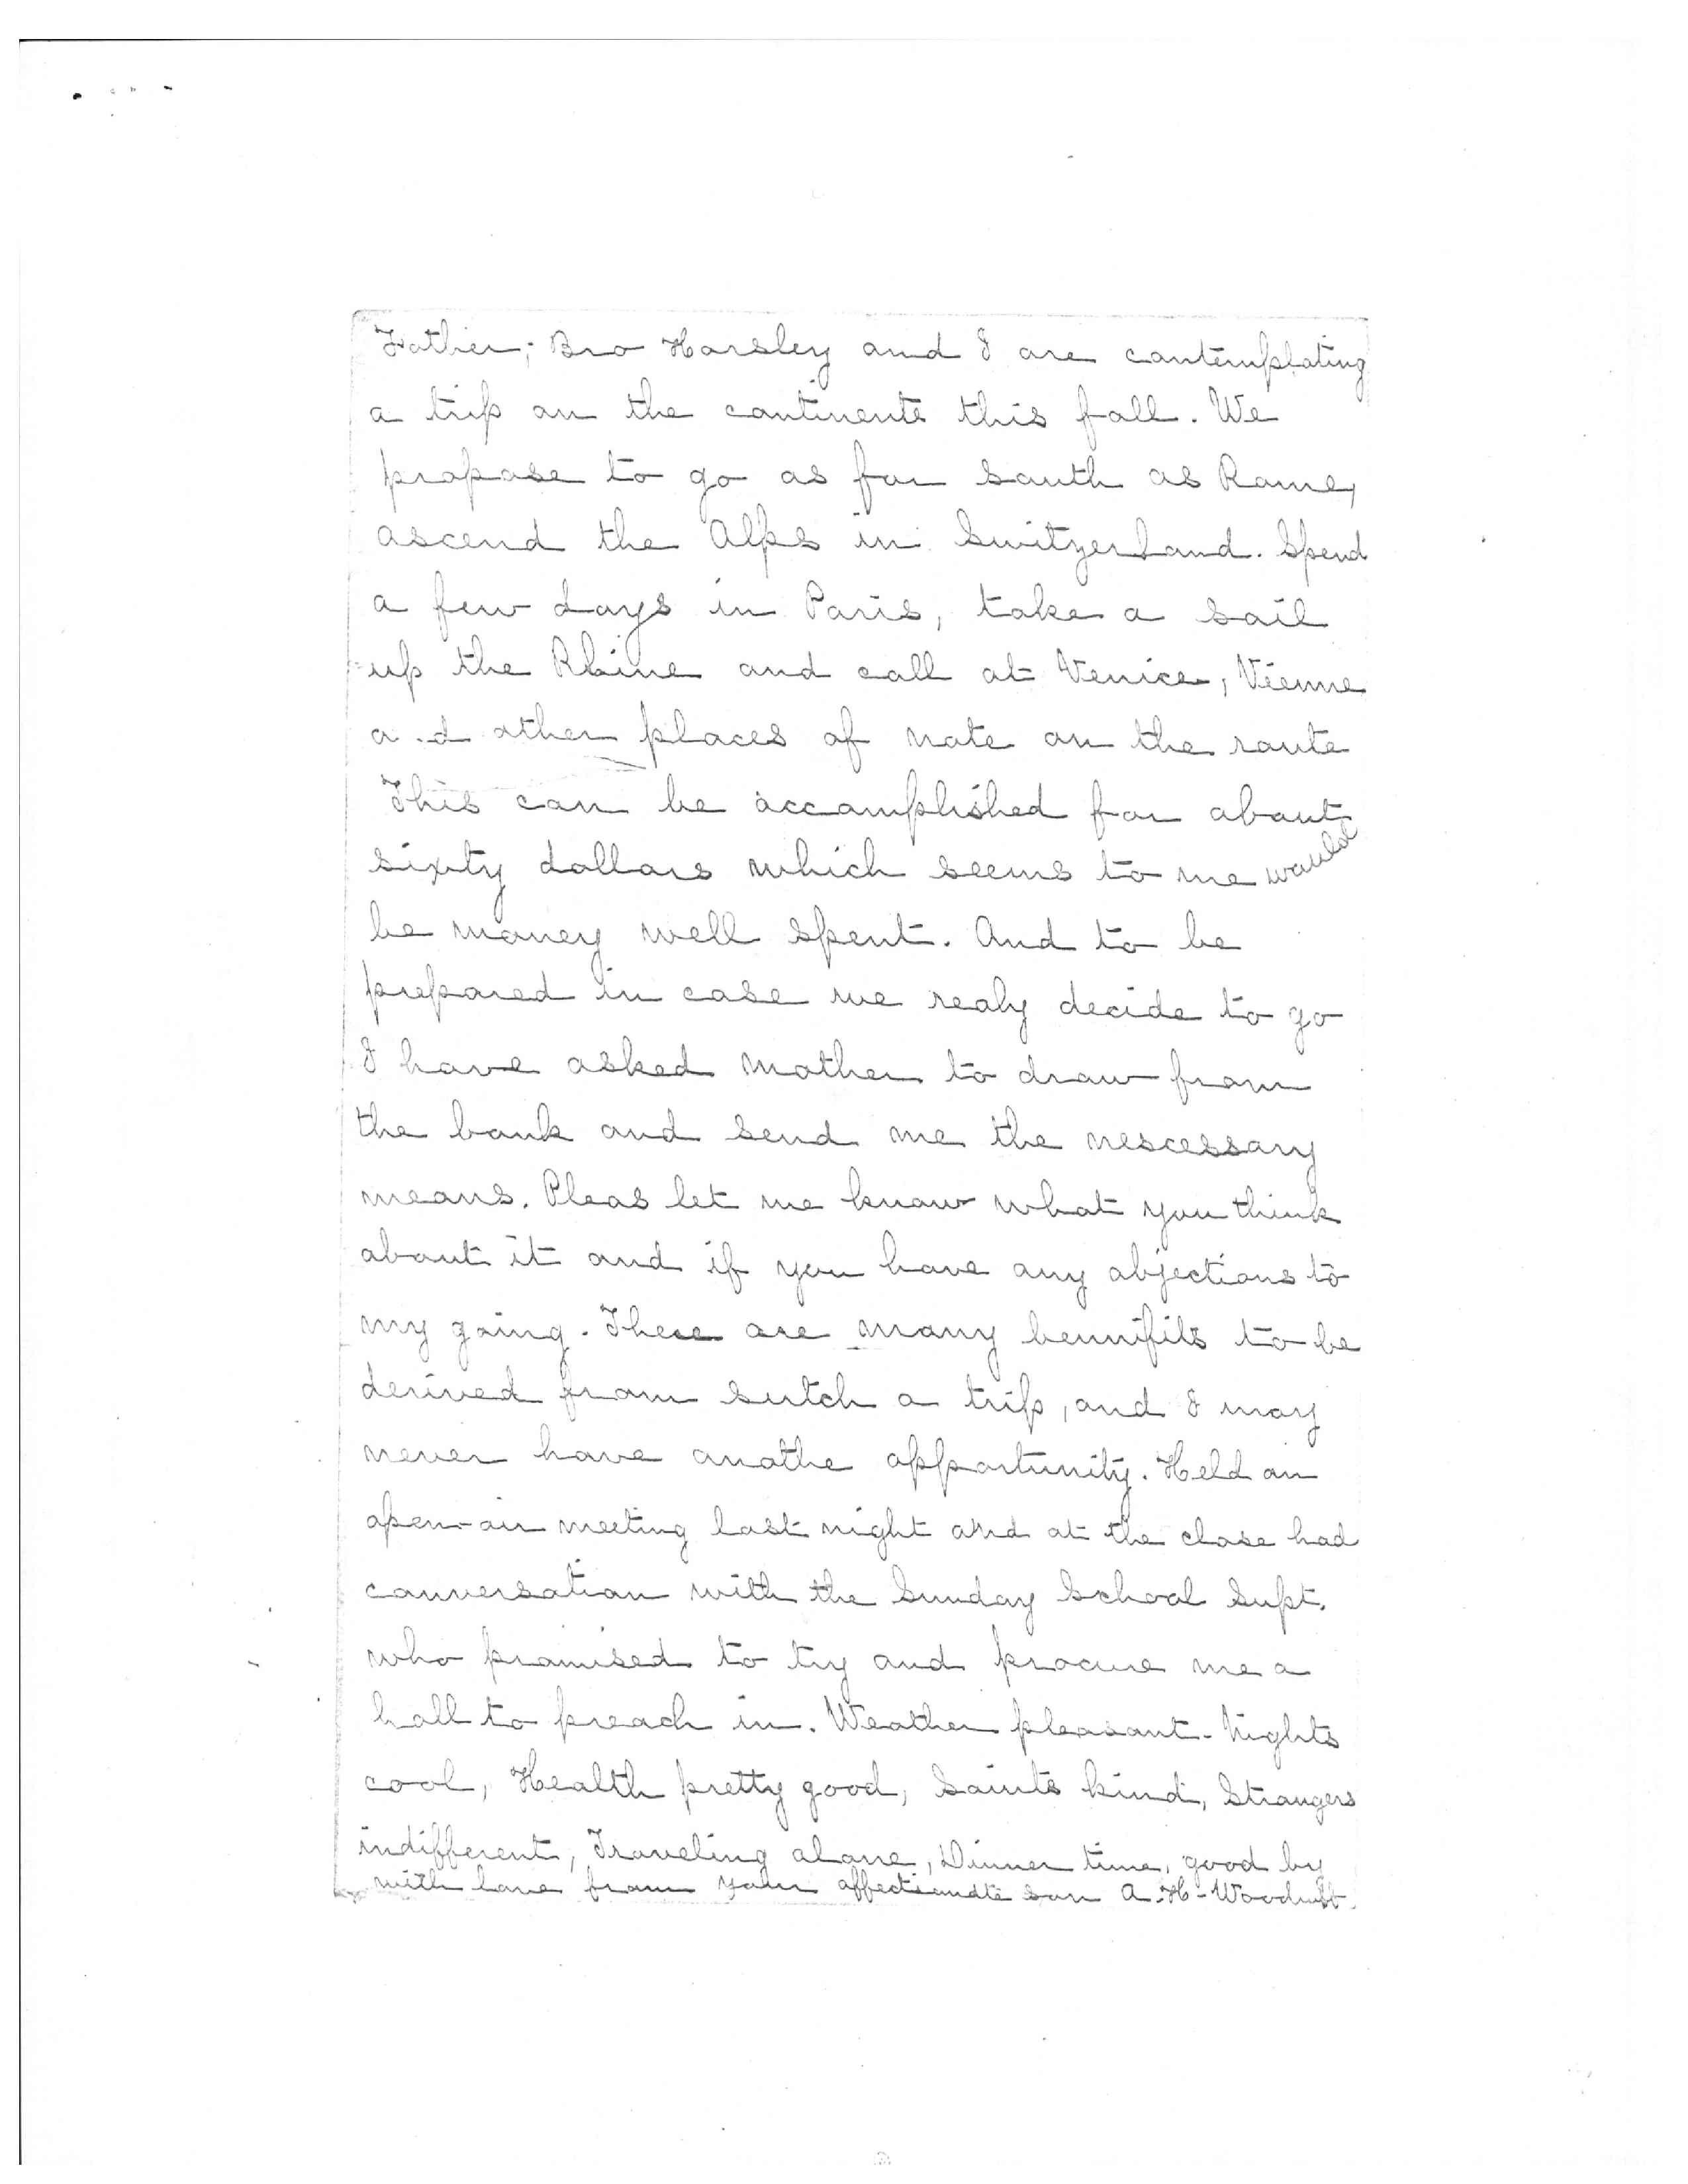 Father; Bro Horsley and I are contemplating
a trip on the continents this fall. We
propose to go as far south as Rome,
ascend the Alps in Switzerland. Spend
a few days in Paris, take a sail
up the Rhine and call at Venice, Vienne
a d other places of note on the route
This can be accomplished for about
sixty dollars which seems to me would
be money well spent. And to be
prepared in case we realy decide to go
I have asked Mother to draw from
the bank and send me the nescessary
means. Pleas let me know what you think
about it and if you have any objections to
my going. There are many bennifits to be
derived from sutch a trip, and I may
never have anothe opportunity. Held an
open-air meeting last night and at the close had
conversation with the Sunday School Supt.
who promised to try and procure me a
hall to preach in. Weather pleasant. Nights
cool, Health pretty good, Saints kind, Strangers
indifferent, Traveling alone, Dinner time, good by
with love from your affectionate son A. H. Woodruff.